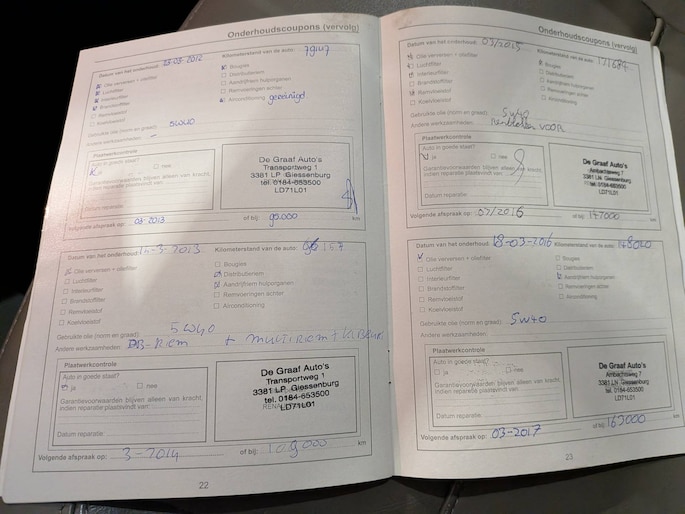 Onderhoudscoupons (vervolg)
Datum van het onderhoud: 03-03-2012 Kilometerstand van de auto: 79147
Olie verversen + oliefilter
Luchtfilter
Interieurfilter
Brandstoffilter
Remvloeistof
Koelvloeistof
Bougies
Distributieriem
Aandrijfriem hulporganen
Remvoeringen achter
Airconditioning gereinigd
Gebruikte olie (norm en graad): 5W40
Andere werkzaamheden: -
Plaatwerkcontrole
Auto in goede staat?
ja nee
Garantievoorwaarden blijven alleen van kracht,
indien reparatie plaatsvindt van
Datum reparatie:
De Graaf Auto's
Transportweg 1
3381 LP Giessenburg
tel. 0184-653500
LD71L01
Volgende afspraak op: 03-2013 of bij: 90.000 km
Datum van het onderhoud: 14-3-2013 Kilometerstand van de auto:
Olie verversen + oliefilter
Luchtfilter
Interieurfilter
Brandstoffilter
Remvloeistof
Koelvloeistof
Bougies
Distributieriem
Aandrijfriem hulporganen
Remvoeringen achter
Airconditioning
Gebruikte olie (norm en graad): 5W40
Andere werkzaamheden: DB-Riem + MULTIRIEM +
Plaatwerkcontrole
Auto in goede staat?
ja nee
Garantievoorwaarden blijven alleen van kracht,
indien reparatie plaatsvindt van
Datum reparatie:
De Graaf Auto's
Transportweg 1
3381 LP Giessenburg
tel. 0184-653500
LD71L01
Volgende afspraak op: 3-2014 of bij: 109000 km
22
Onderhoudscoupons (vervolg)
Datum van het onderhoud: 03/2015 Kilometerstand van de auto: 131684
Olie verversen + oliefilter
Luchtfilter
Interieurfilter
Brandstoffilter
Remvloeistof
Koelvloeistof
Bougies
Distributieriem
Aandrijfriem hulporganen
Remvoeringen achter
Airconditioning
Gebruikte olie (norm en graad): 5W40
Andere werkzaamheden: Remblokken VOOR
Plaatwerkcontrole
Auto in goede staat?
ja nee
Garantievoorwaarden blijven alleen van kracht,
indien reparatie plaatsvindt van
Datum reparatie:
De Graaf Auto's
Transportweg 1
3381 LP Giessenburg
tel. 0184-653500
LD71L01
Volgende afspraak op: 03/2016 of bij: 147000 km
Datum van het onderhoud: 18-03-2016 Kilometerstand van de auto: 148020
Olie verversen + oliefilter
Luchtfilter
Interieurfilter
Brandstoffilter
Remvloeistof
Koelvloeistof
Bougies
Distributieriem
Aandrijfriem hulporganen
Remvoeringen achter
Airconditioning
Gebruikte olie (norm en graad): 5W40
Andere werkzaamheden:
Plaatwerkcontrole
Auto in goede staat?
ja nee
Garantievoorwaarden blijven alleen van kracht,
indien reparatie plaatsvindt van
Datum reparatie:
De Graaf Auto's
Ambachtsweg 7
3381 LN Giessenburg
tel. 0184-653500
LD71L01
Volgende afspraak op: 03-2017 of bij: 163000 km
23